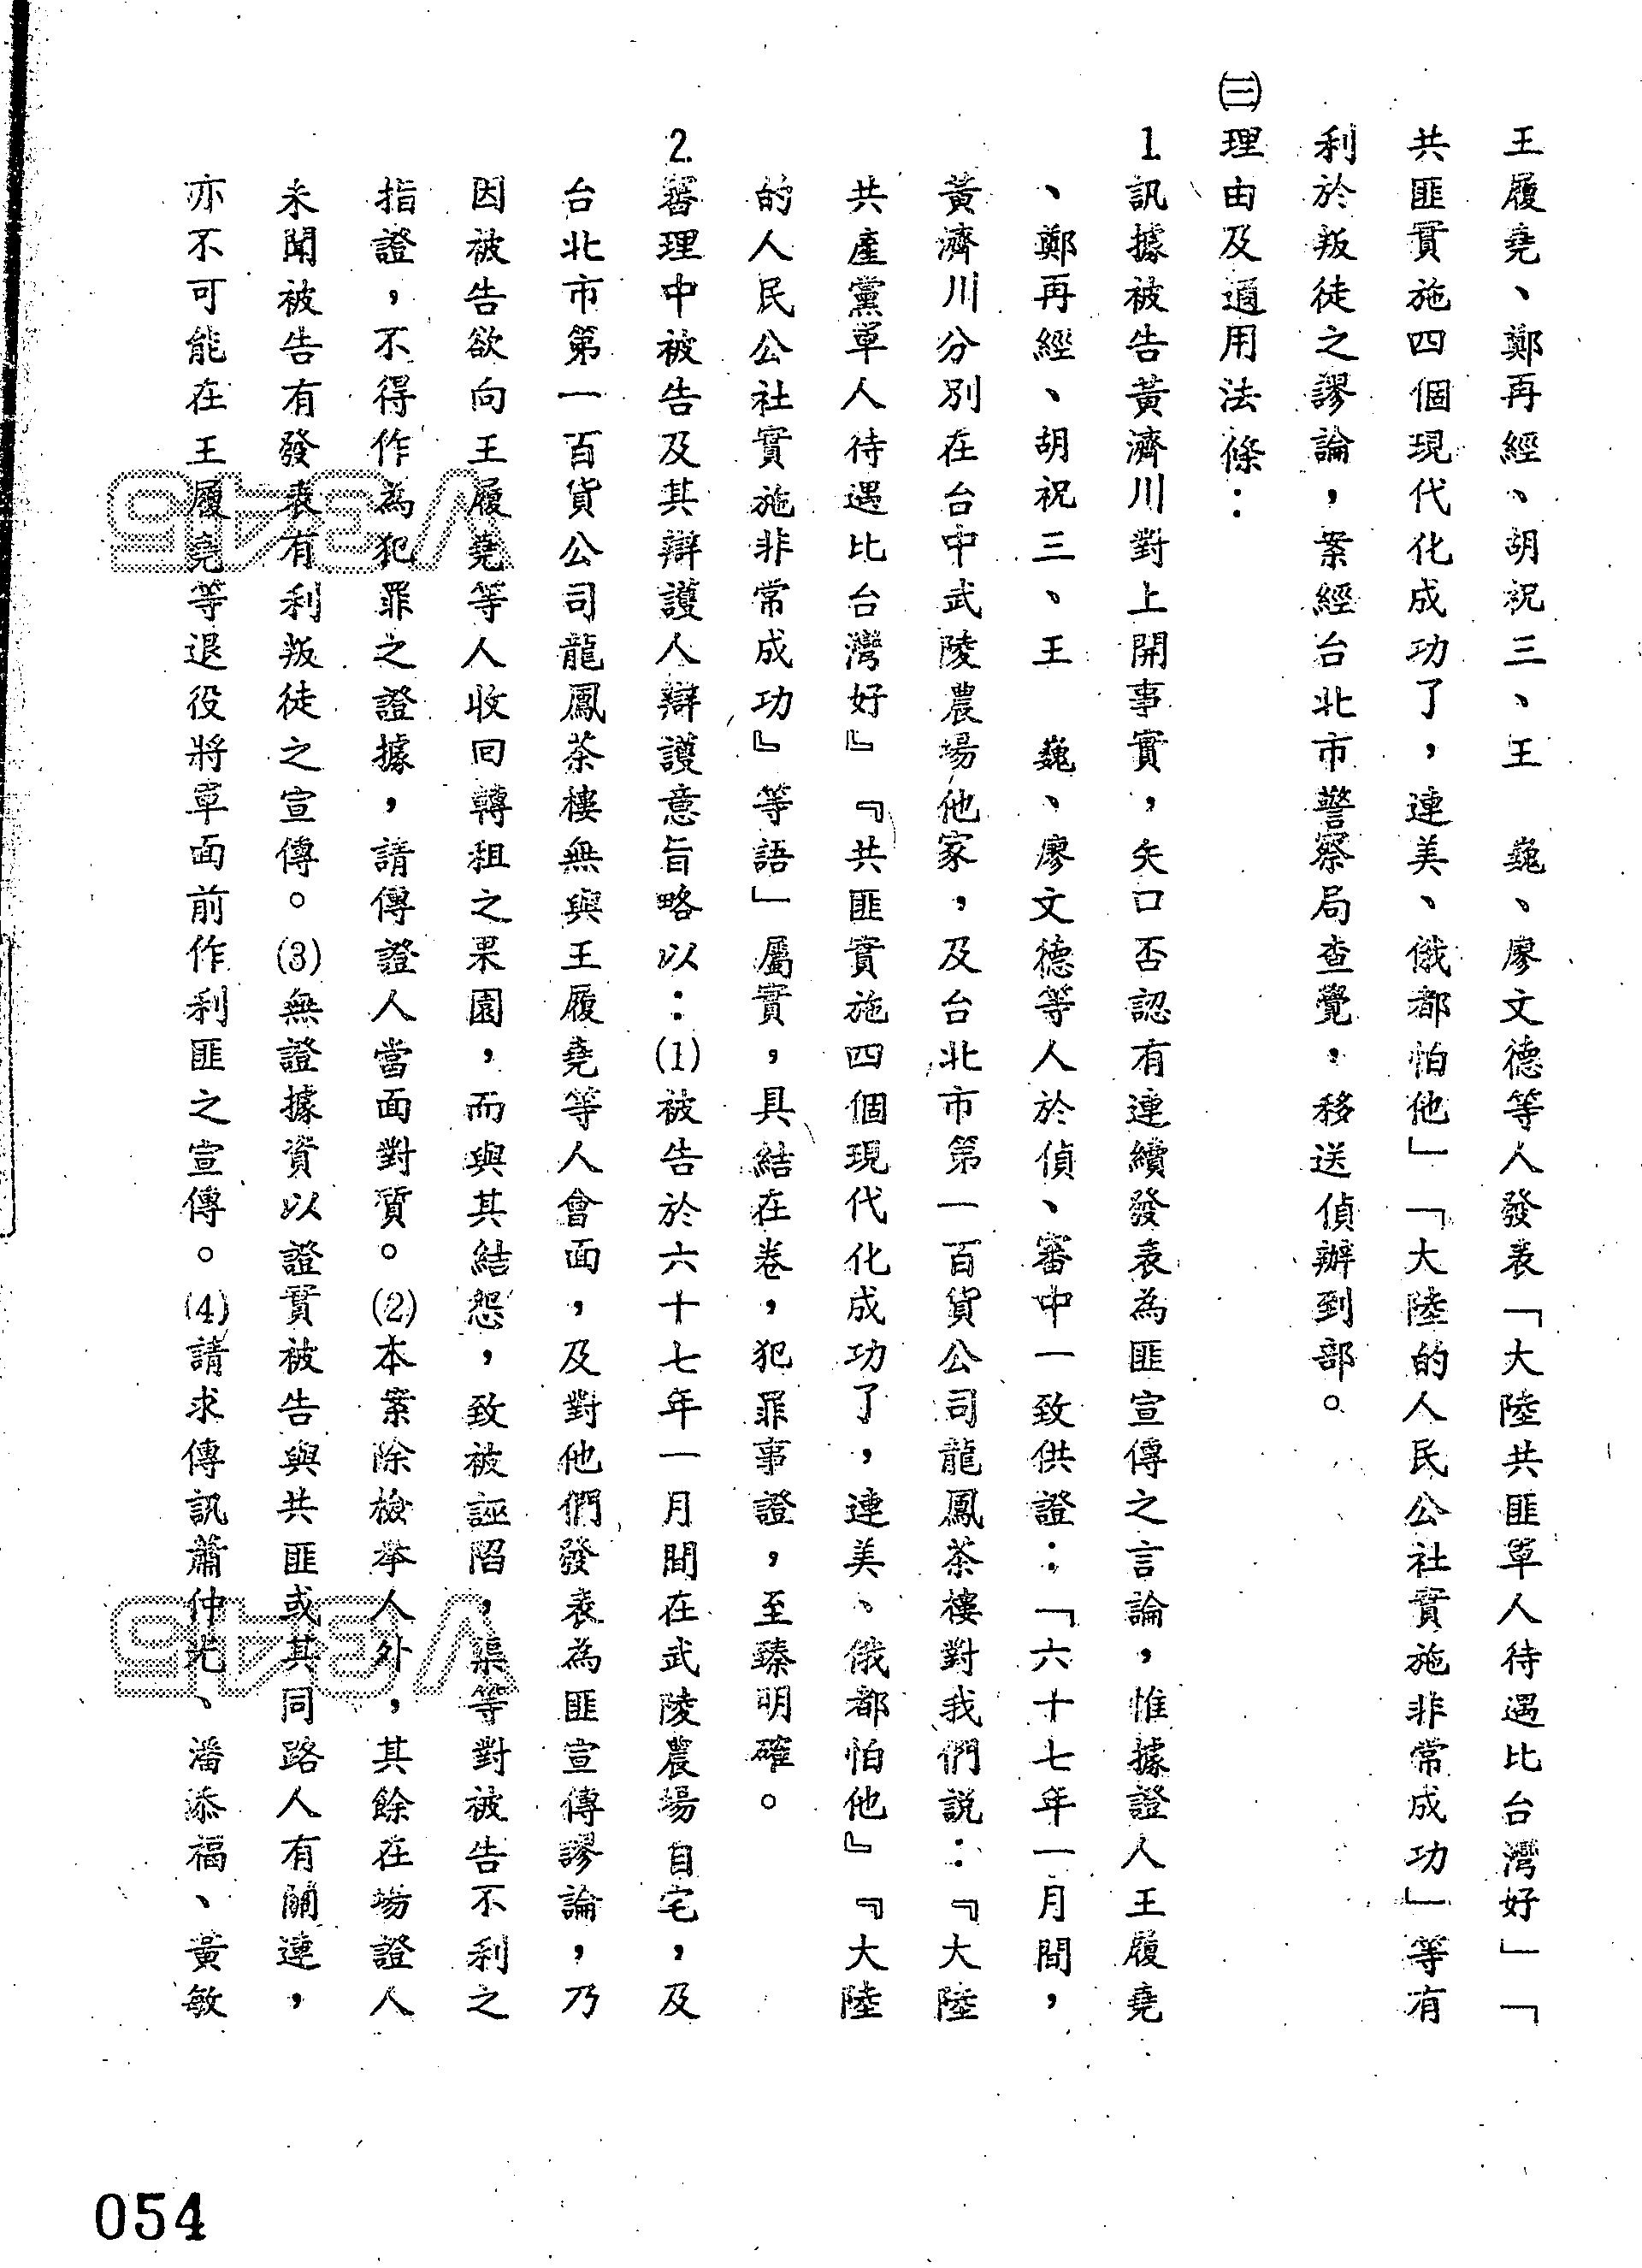 王履堯、鄭再經、胡祝三、王　巍、廖文德等人發表「大陸共匪軍人待遇比台灣好」「
共匪實施四個現代化成功了，連美、俄都怕他」「大陸的人民公社實施非常成功」等有
利於叛徒之謬論，案經台北市警察局查覺，移送偵辦到部。
㈢理由及適用法條：
1.訊據被告黃濟川對上開事實，矢口否認有連續發表為匪宣傳之言論，惟據證人王履堯
、鄭再經、胡祝三、王　巍、廖文德等人於偵、審中一致供證：「六十七年一月間，
黃濟川分別在台中武陵農場他家，及台北市第一百貨公司龍鳳茶樓對我們説：『大陸
共產黨軍人待遇比台灣好』『共匪實施四個現代化成功了，連美、俄都怕他』『大陸
的人民公社實施非常成功』等語」屬實，具結在卷，犯罪事證，至臻明確。
2.審理中被告及其辯護人辯護意旨略以：(1)被告於六十七年一月間在武陵農場自宅，及
台北市第一百貨公司龍鳳茶樓無與王履堯等人會面，及對他們發表為匪宣傳謬論，乃
因被告欲向王履堯等人收回轉租之果園，而與其結怨，致被誣陷，渠等對被告不利之
指證，不得作為犯罪之證據，請傳證人當面對質。(2)本案除檢舉人外，其餘在場證人
未聞被告有發表有利叛徒之宣傳。(3)無證據資以證實被告與共匪或其同路人有關連，
亦不可能在王履堯等退役將軍面前作利匪之宣傳。(4)請求傳訊蕭仲光、潘添福、黃敏
054